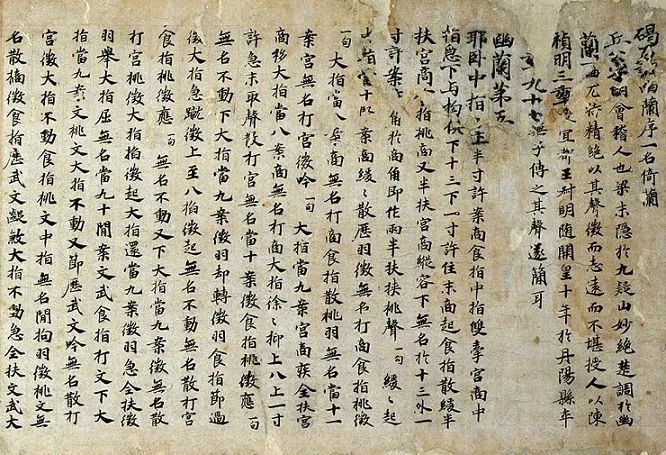 碣石調幽蘭序一名倚蘭
丘公字明會稽人也梁末隱於九疑山妙絕楚調於幽
蘭一曲尤特精絕以其聲微而志遠而不堪授人以陳
禎明三年授宜都王叔明隨開皇十年於丹陽縣卒
年九十七無子傳之其聲遂簡耳
幽蘭第五
耶卧中指十上半寸許案商食指中指雙牽宮商中
指急下与拘俱下十三下一寸許住末商起食指散緩半
扶宮商食指挑商又半扶宮商縱容下無名於十三外一
寸許案商角於商角即作兩半扶挾挑聲一句緩〻起
指當十案商緩〻散歷羽徵無名打商食指挑徵
一句大指當八案商無名打商食指散挑羽無名當十一
案宮無名打宮徵吟一句大指當九案宮商疾全扶宮
商移大指當八案商無名打商大指徐〻抑上八上一寸
許急末取聲散打宮無名當十案徵食指挑徵應一句
無名不動下大指當九案徵羽却轉徵羽食指節過
徵大指急蹴徵上至八抬徵起無名不動無名散打宮
食指挑徵應一句無名不動又下大指當九案徵無名散
打宮挑徵大指抬徵起大指還當九案徵羽急全扶徵
羽舉大指屈無名當九十間案文武食指打文下大
指當九案文挑文大指不動又節歷武文吟無名散打
宮徵大指不動食指挑文中指無名間拘羽徵挑文無
名散摘徵食指歷武文蹴大指不動急全扶文武大